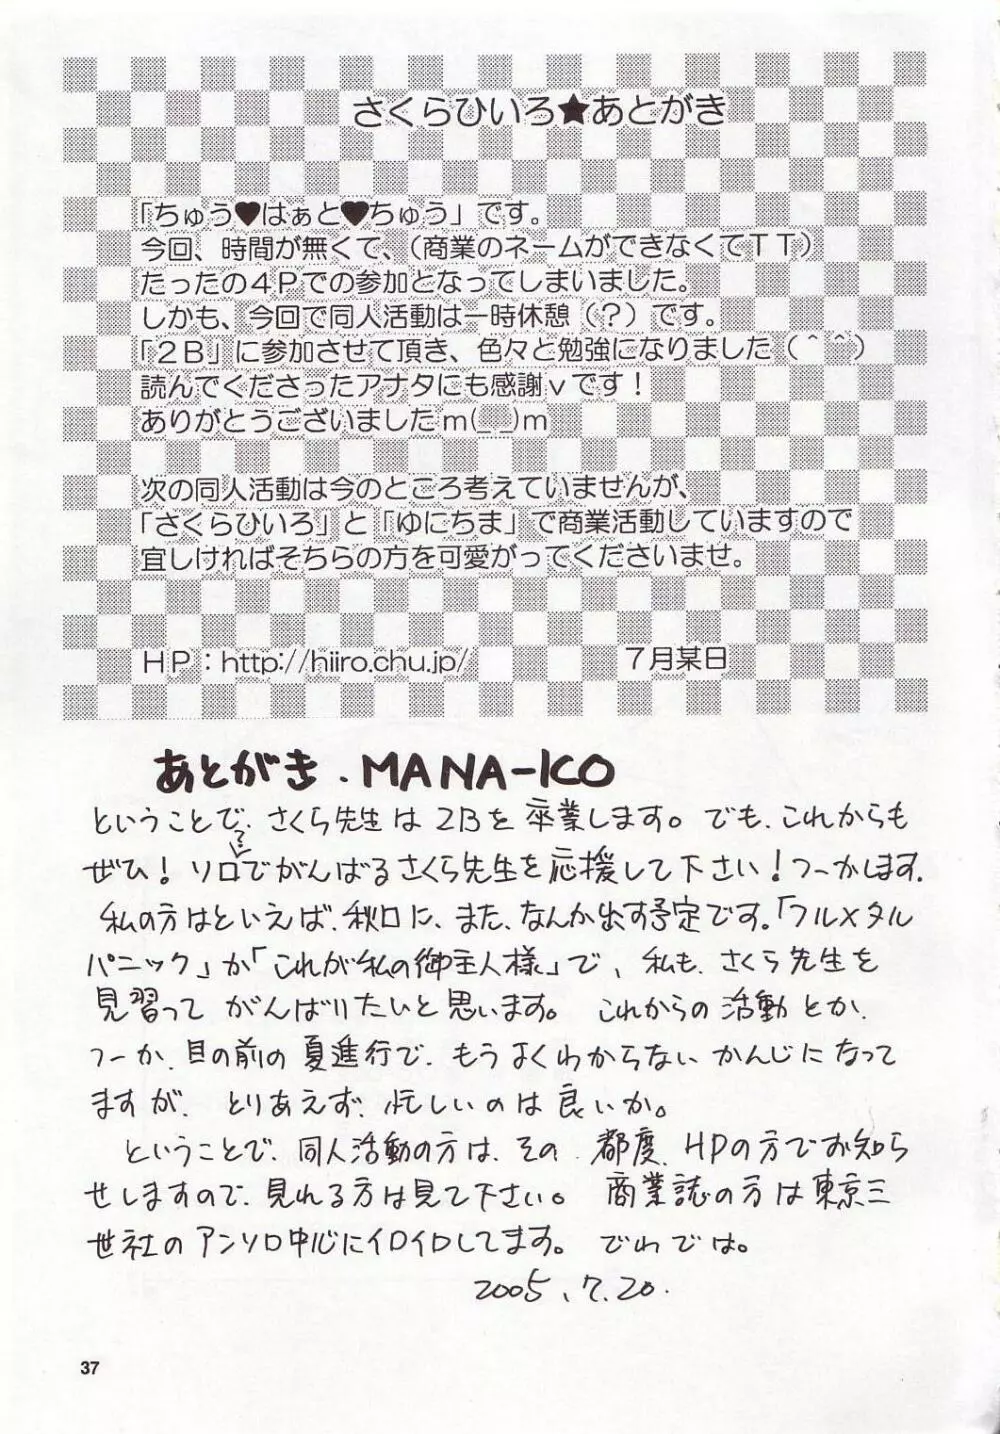 さくらひいろ★あとがき
「ちゅう♥はぁと♥ちゅう」です。
今回、時間が無くて、(商業のネームができなくてTT)
たったの4Pでの参加となってしまいました。
しかも、今回で同人活動は一時休憩(?)です。
「2B」に参加させて頂き、色々と勉強になりました(^ ^)
読んでくださったアナタにも感謝vです!
ありがとうございましたm(_ _)m
次の同人活動は今のところ考えていませんが、
「さくらひいろ」と「ゆにちま」で商業活動していますので
宜しければそちらの方を可愛がってくださいませ。
HP:http://hiiro.chu.jp/ 7月某日
あとがき.MANA-ICO
ということで、さくら先生は2Bを卒業します。でも、これからも
ぜひ!ソロ(?)でがんばるさくら先生を応援して下さい!つーかします。
私の方はといえば、秋口に、また、なんか出す予定です。「フルメタル
パニック」か「これが私の御主人様」で、私も、さくら先生を
見習って がんばりたいと思います。 これからの活動とか、
つーか、目の前の夏進行で、もうよくわからないかんじになって
ますが、とりあえず、忙しいのは良いか。
ということで、同人活動の方は、その都度、HPの方でお知ら
せしますので、見れる方は見て下さい。 商業誌の方は東京三
世社のアンソロ中心にイロイロしてます。 でわでは。
2005.7.20.
37